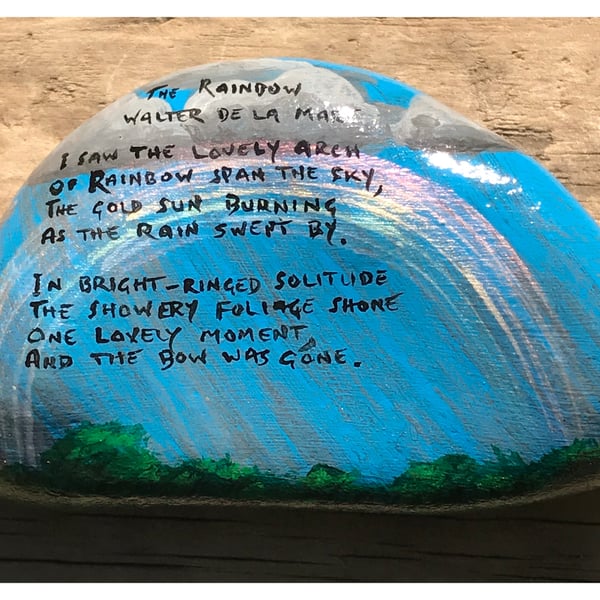 THE RAINBOW
WALTER DE LA MARE
I SAW THE LOVELY ARCH
OF RAINBOW SPAN THE SKY,
THE GOLD SUN BURNING
AS THE RAIN SWEPT BY.
IN BRIGHT-RINGED SOLITUDE
THE SHOWERY FOLIAGE SHONE
ONE LOVELY MOMENT
AND THE BOW WAS GONE.